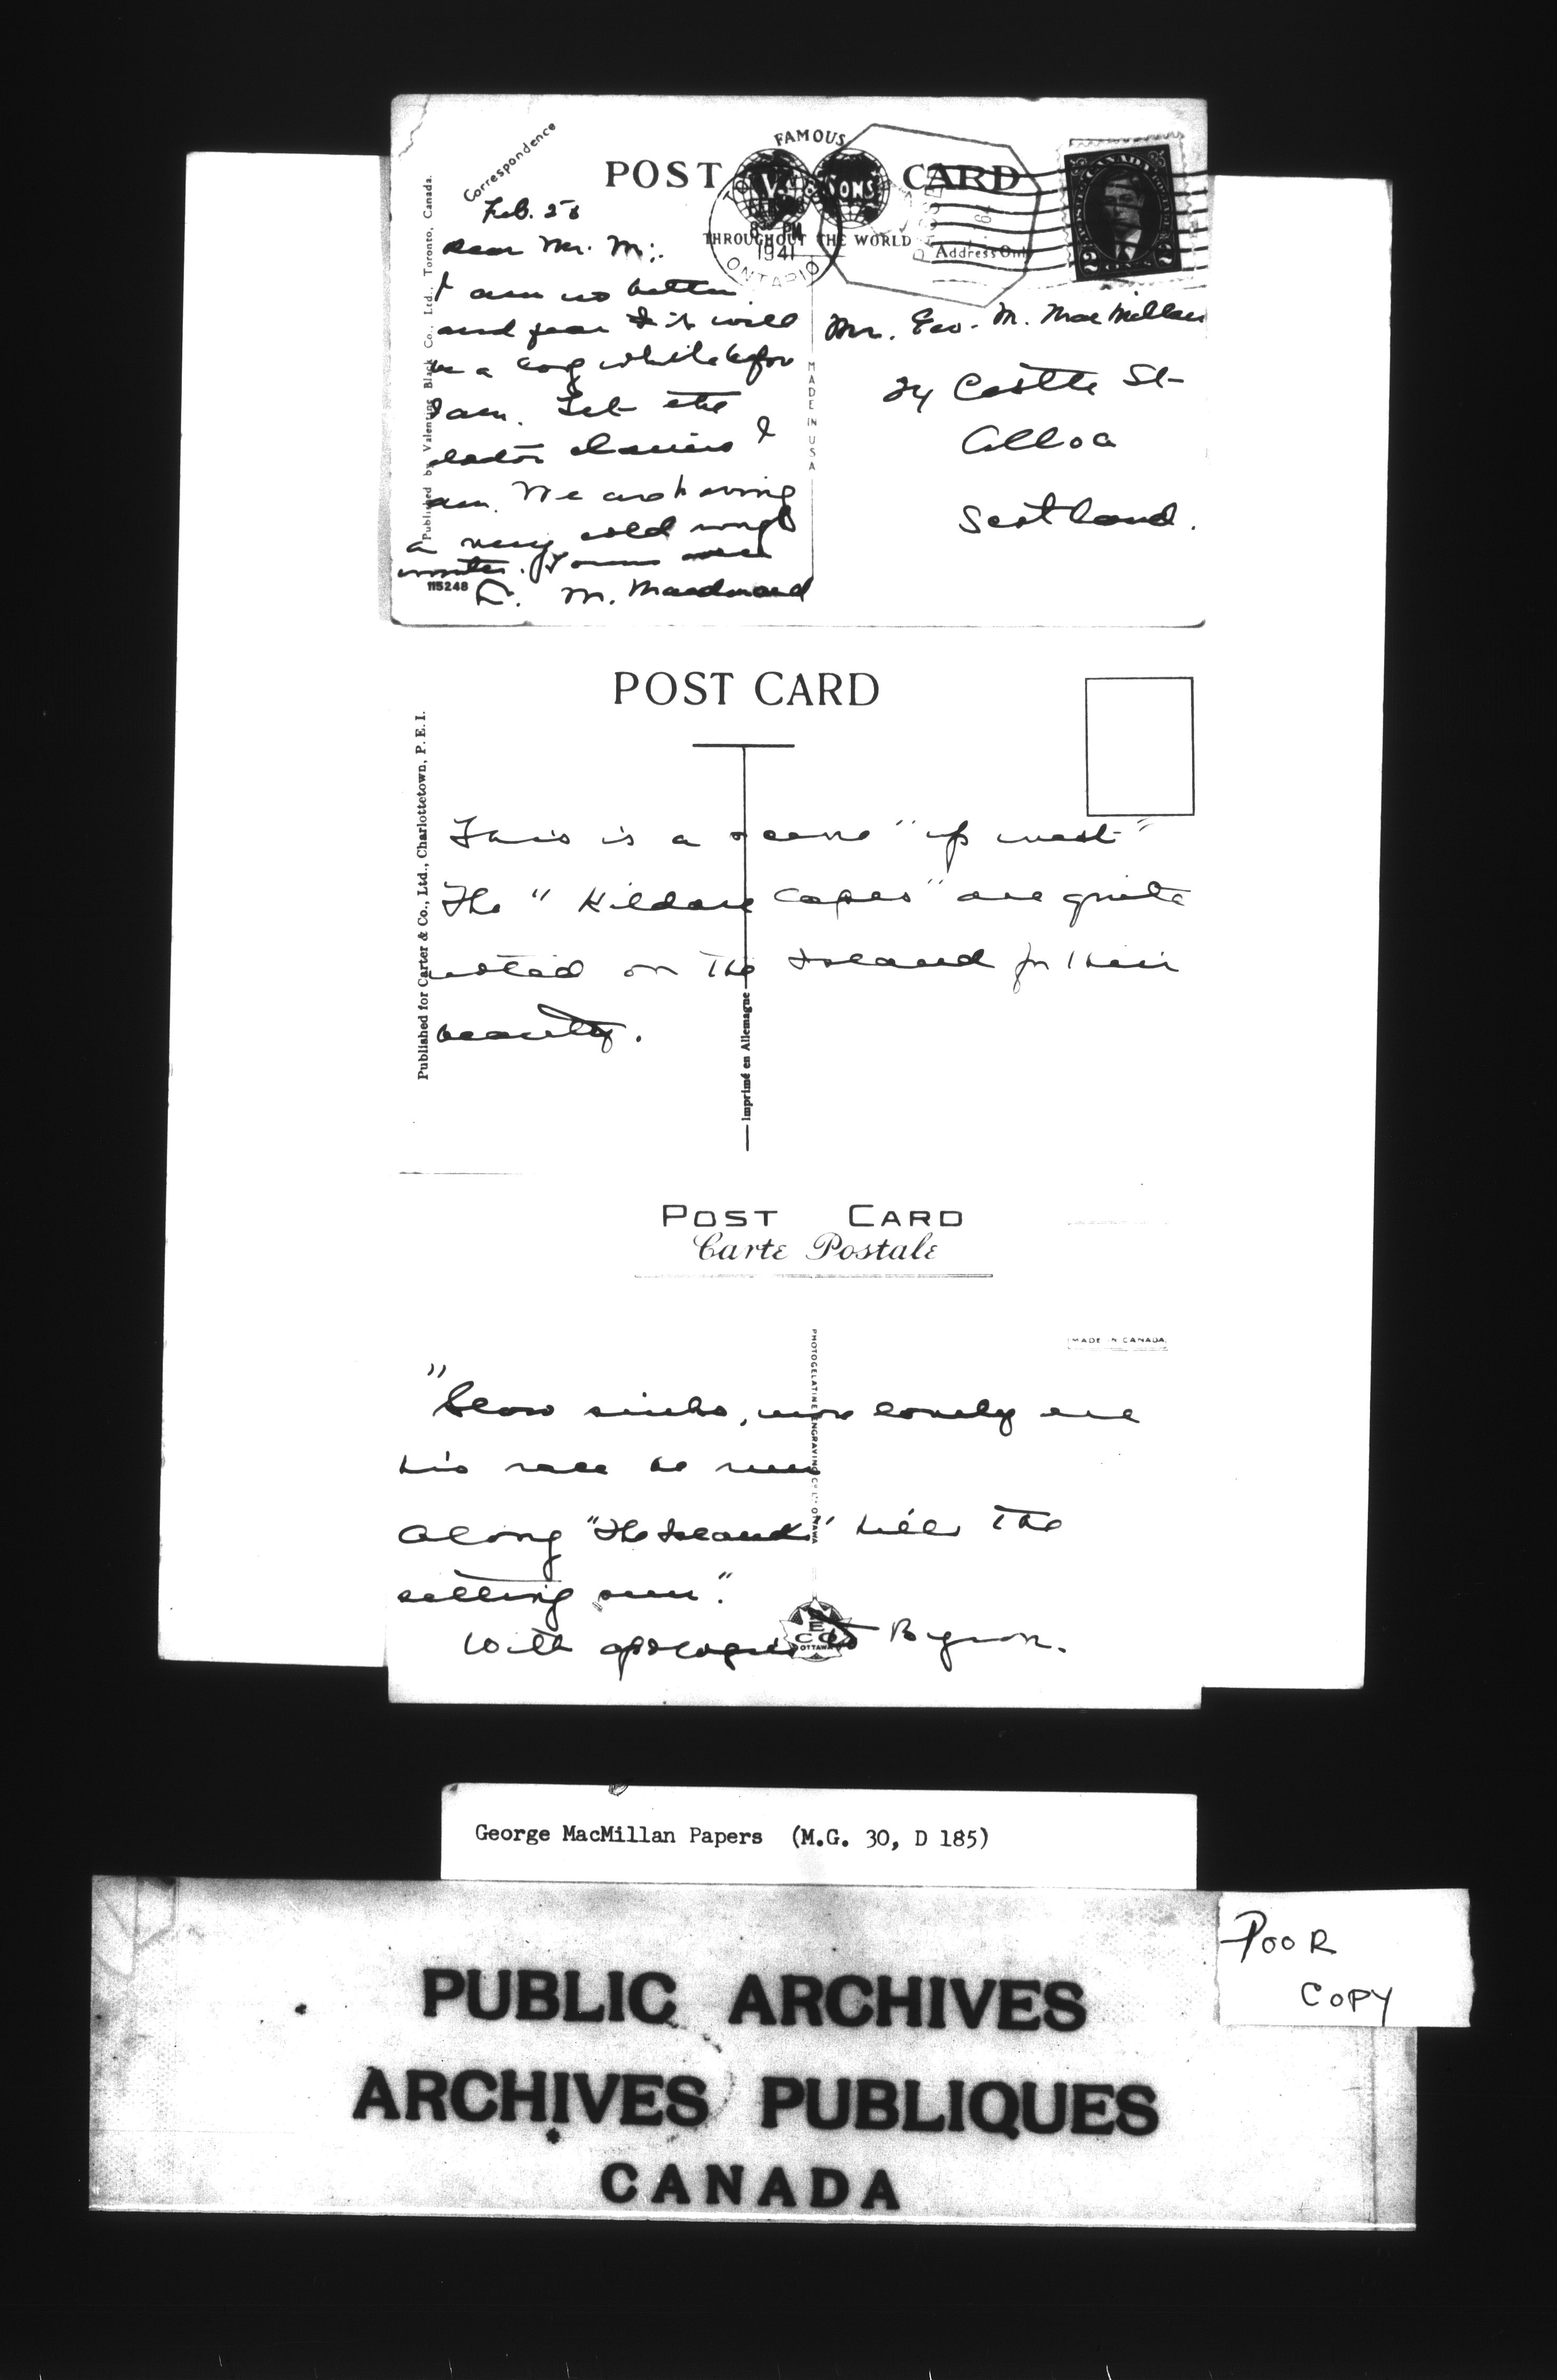 Correspondence
FAMOUS
POST CARD
V. & SONS
THROUGHOUT THE WORLD
Address Only
8 PM
1941
ONTARIO
CANADA
2 CENTS 2
Published by Valentine Black Co., Ltd., Toronto, Canada.
MADE IN USA
Feb. 26
Dear Mr. M:.
I am no better
and fear it will
be a long while before
I am. Let the
doctor I
am. We are having
a very cold rough
winter. Yours
L. M. Macdonald
115248
Mr. Geo. M. MacMillan
24 Castle St
Alloa
Scotland.
POST CARD
Published for Carter & Co., Ltd., Charlottetown, P. E. I.
Imprimé en Allemagne
This is a scene "up west"
The "Kildare Capes" are quite
noted on the Island for their
beauty.
POST CARD
Carte Postale
MADE IN CANADA
PHOTOGELATINE ENGRAVING CO. LTD. OTTAWA
"Slow sinks, more lovely ere
his race be run
Along "The Island" hills the
setting sun."
With apologies to Byron.
PECO
OTTAWA
George MacMillan Papers (M.G. 30, D 185)
POOR
COPY
PUBLIC ARCHIVES
ARCHIVES PUBLIQUES
CANADA